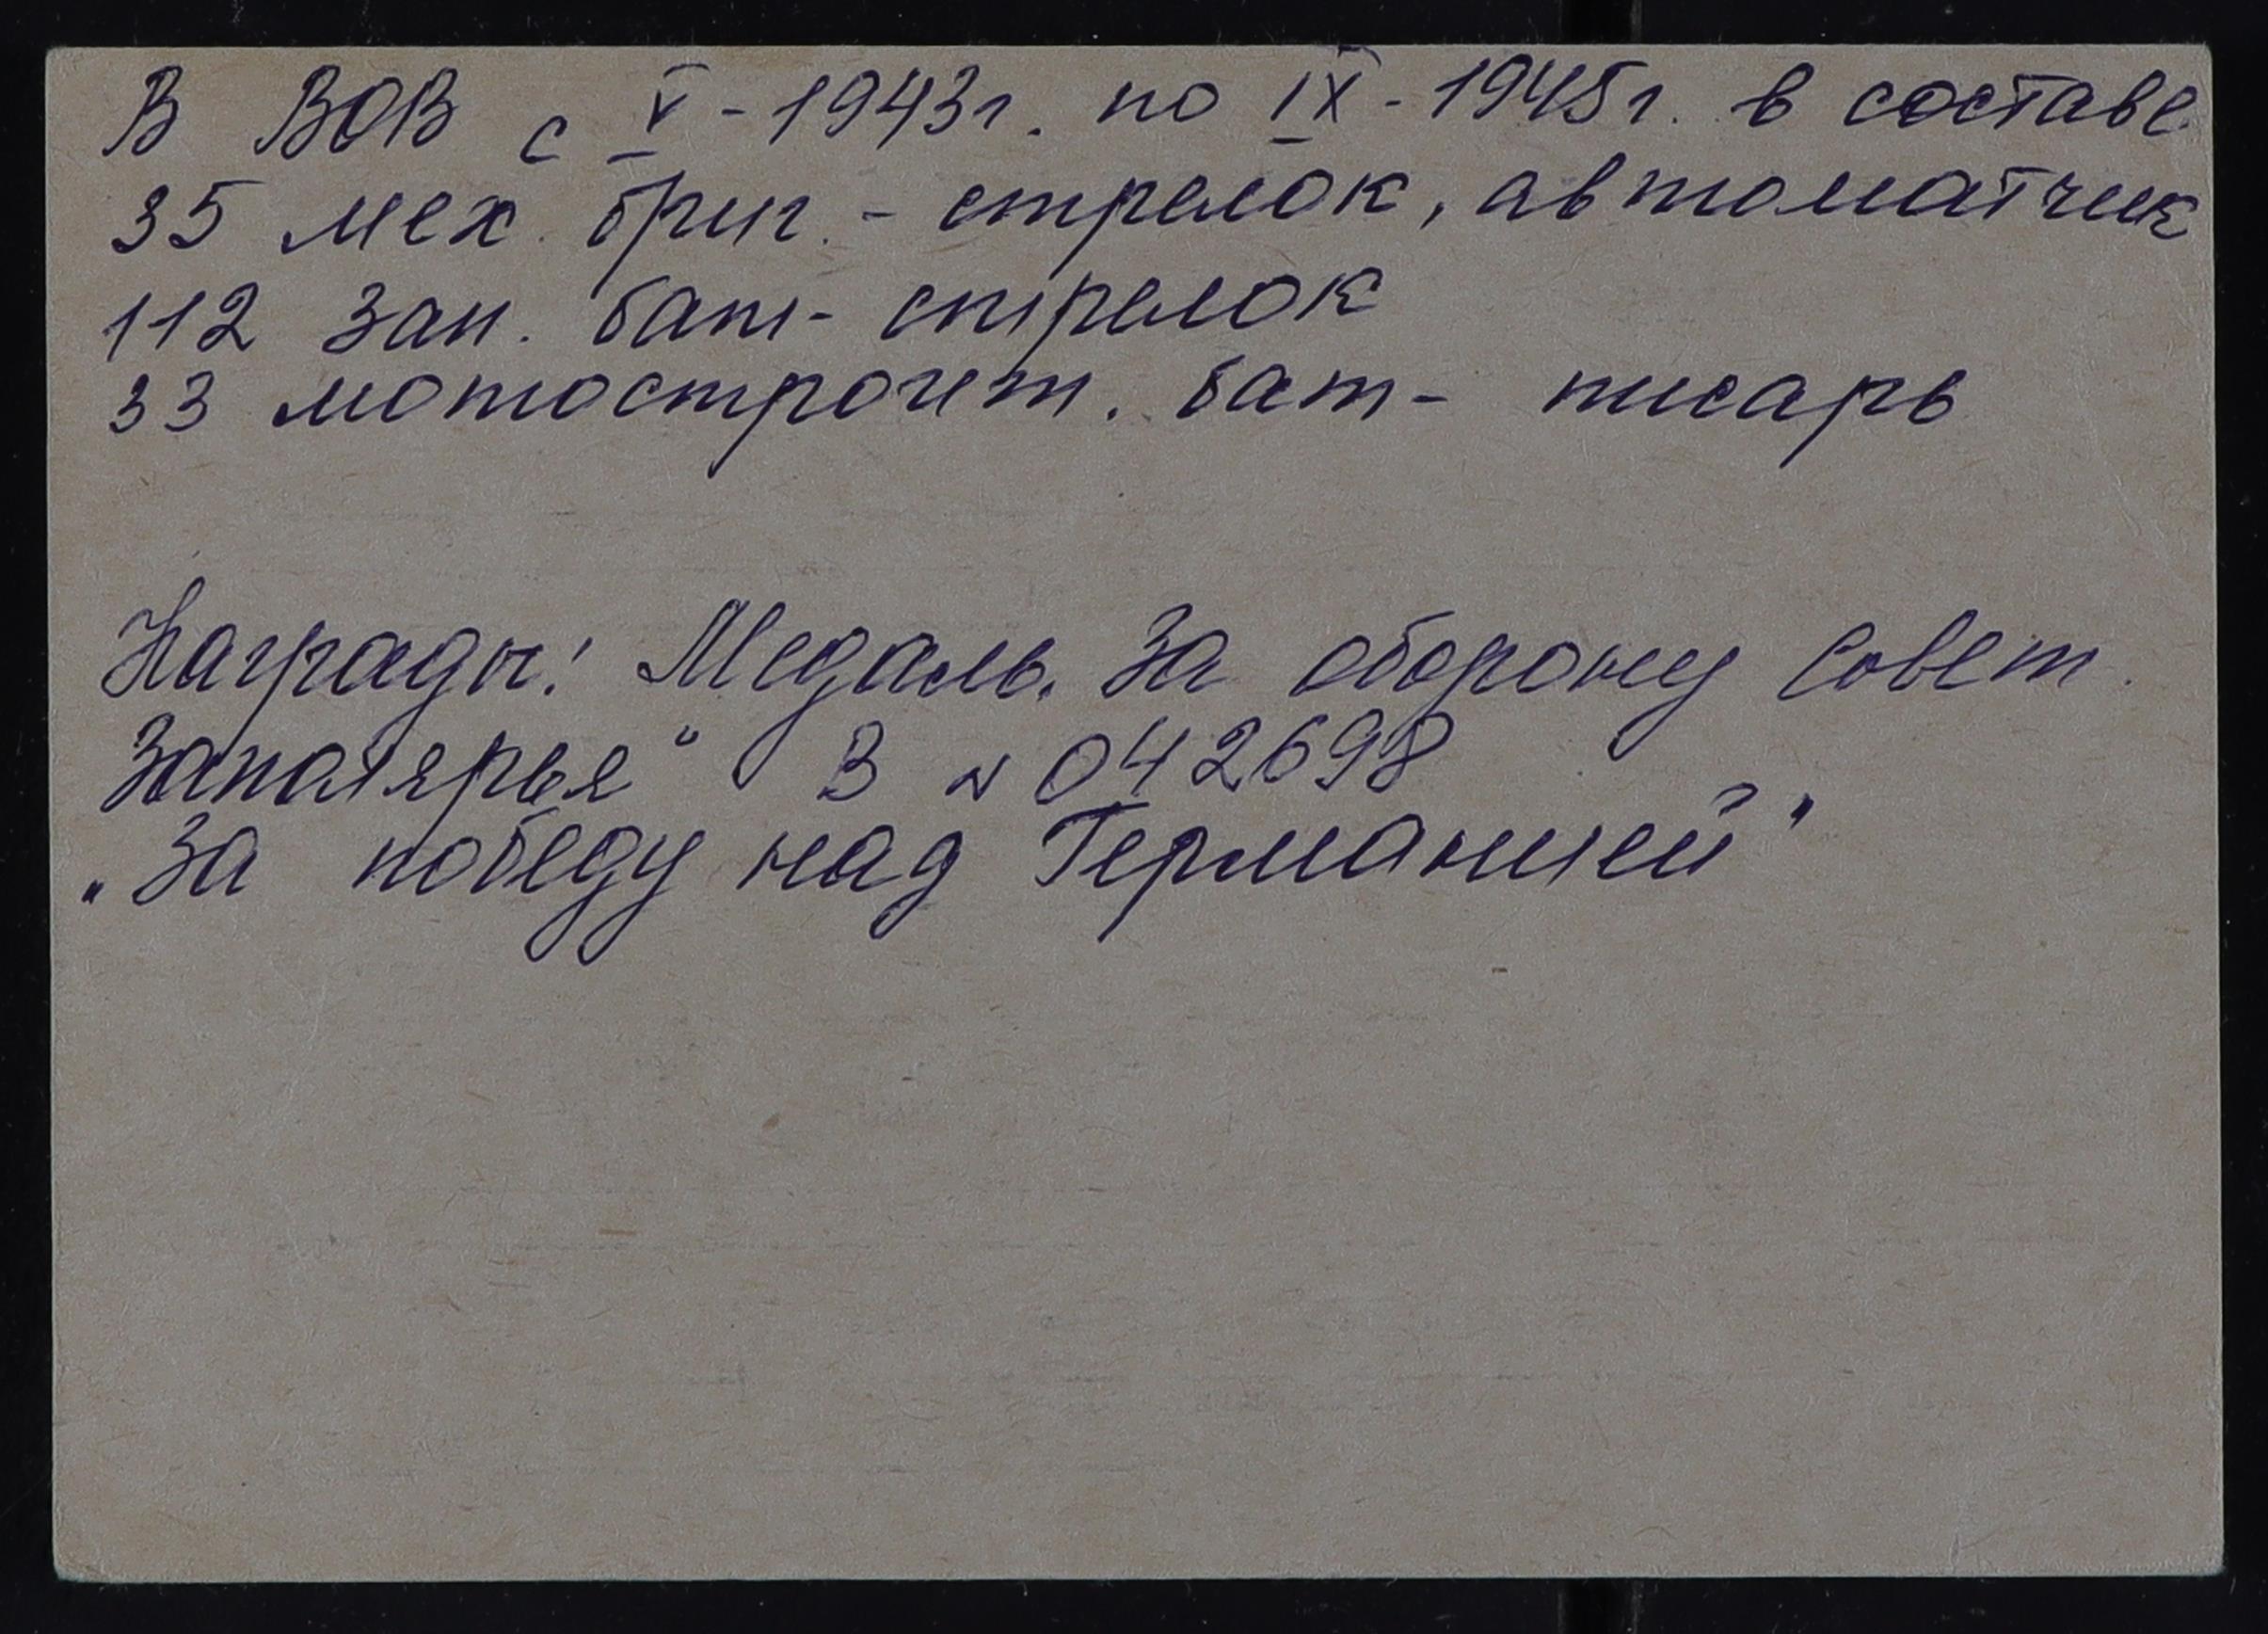 В ВОВ с V - 1943г. по IX - 1945г. в составе
35 мех. бриг. - стрелок, автоматчик
112 зап. бат - стрелок
33 мотостроит. бат - писарь
Награды: Медаль. За оборону Совет.
Заполярья" В N 042698
„За победу над Германией"